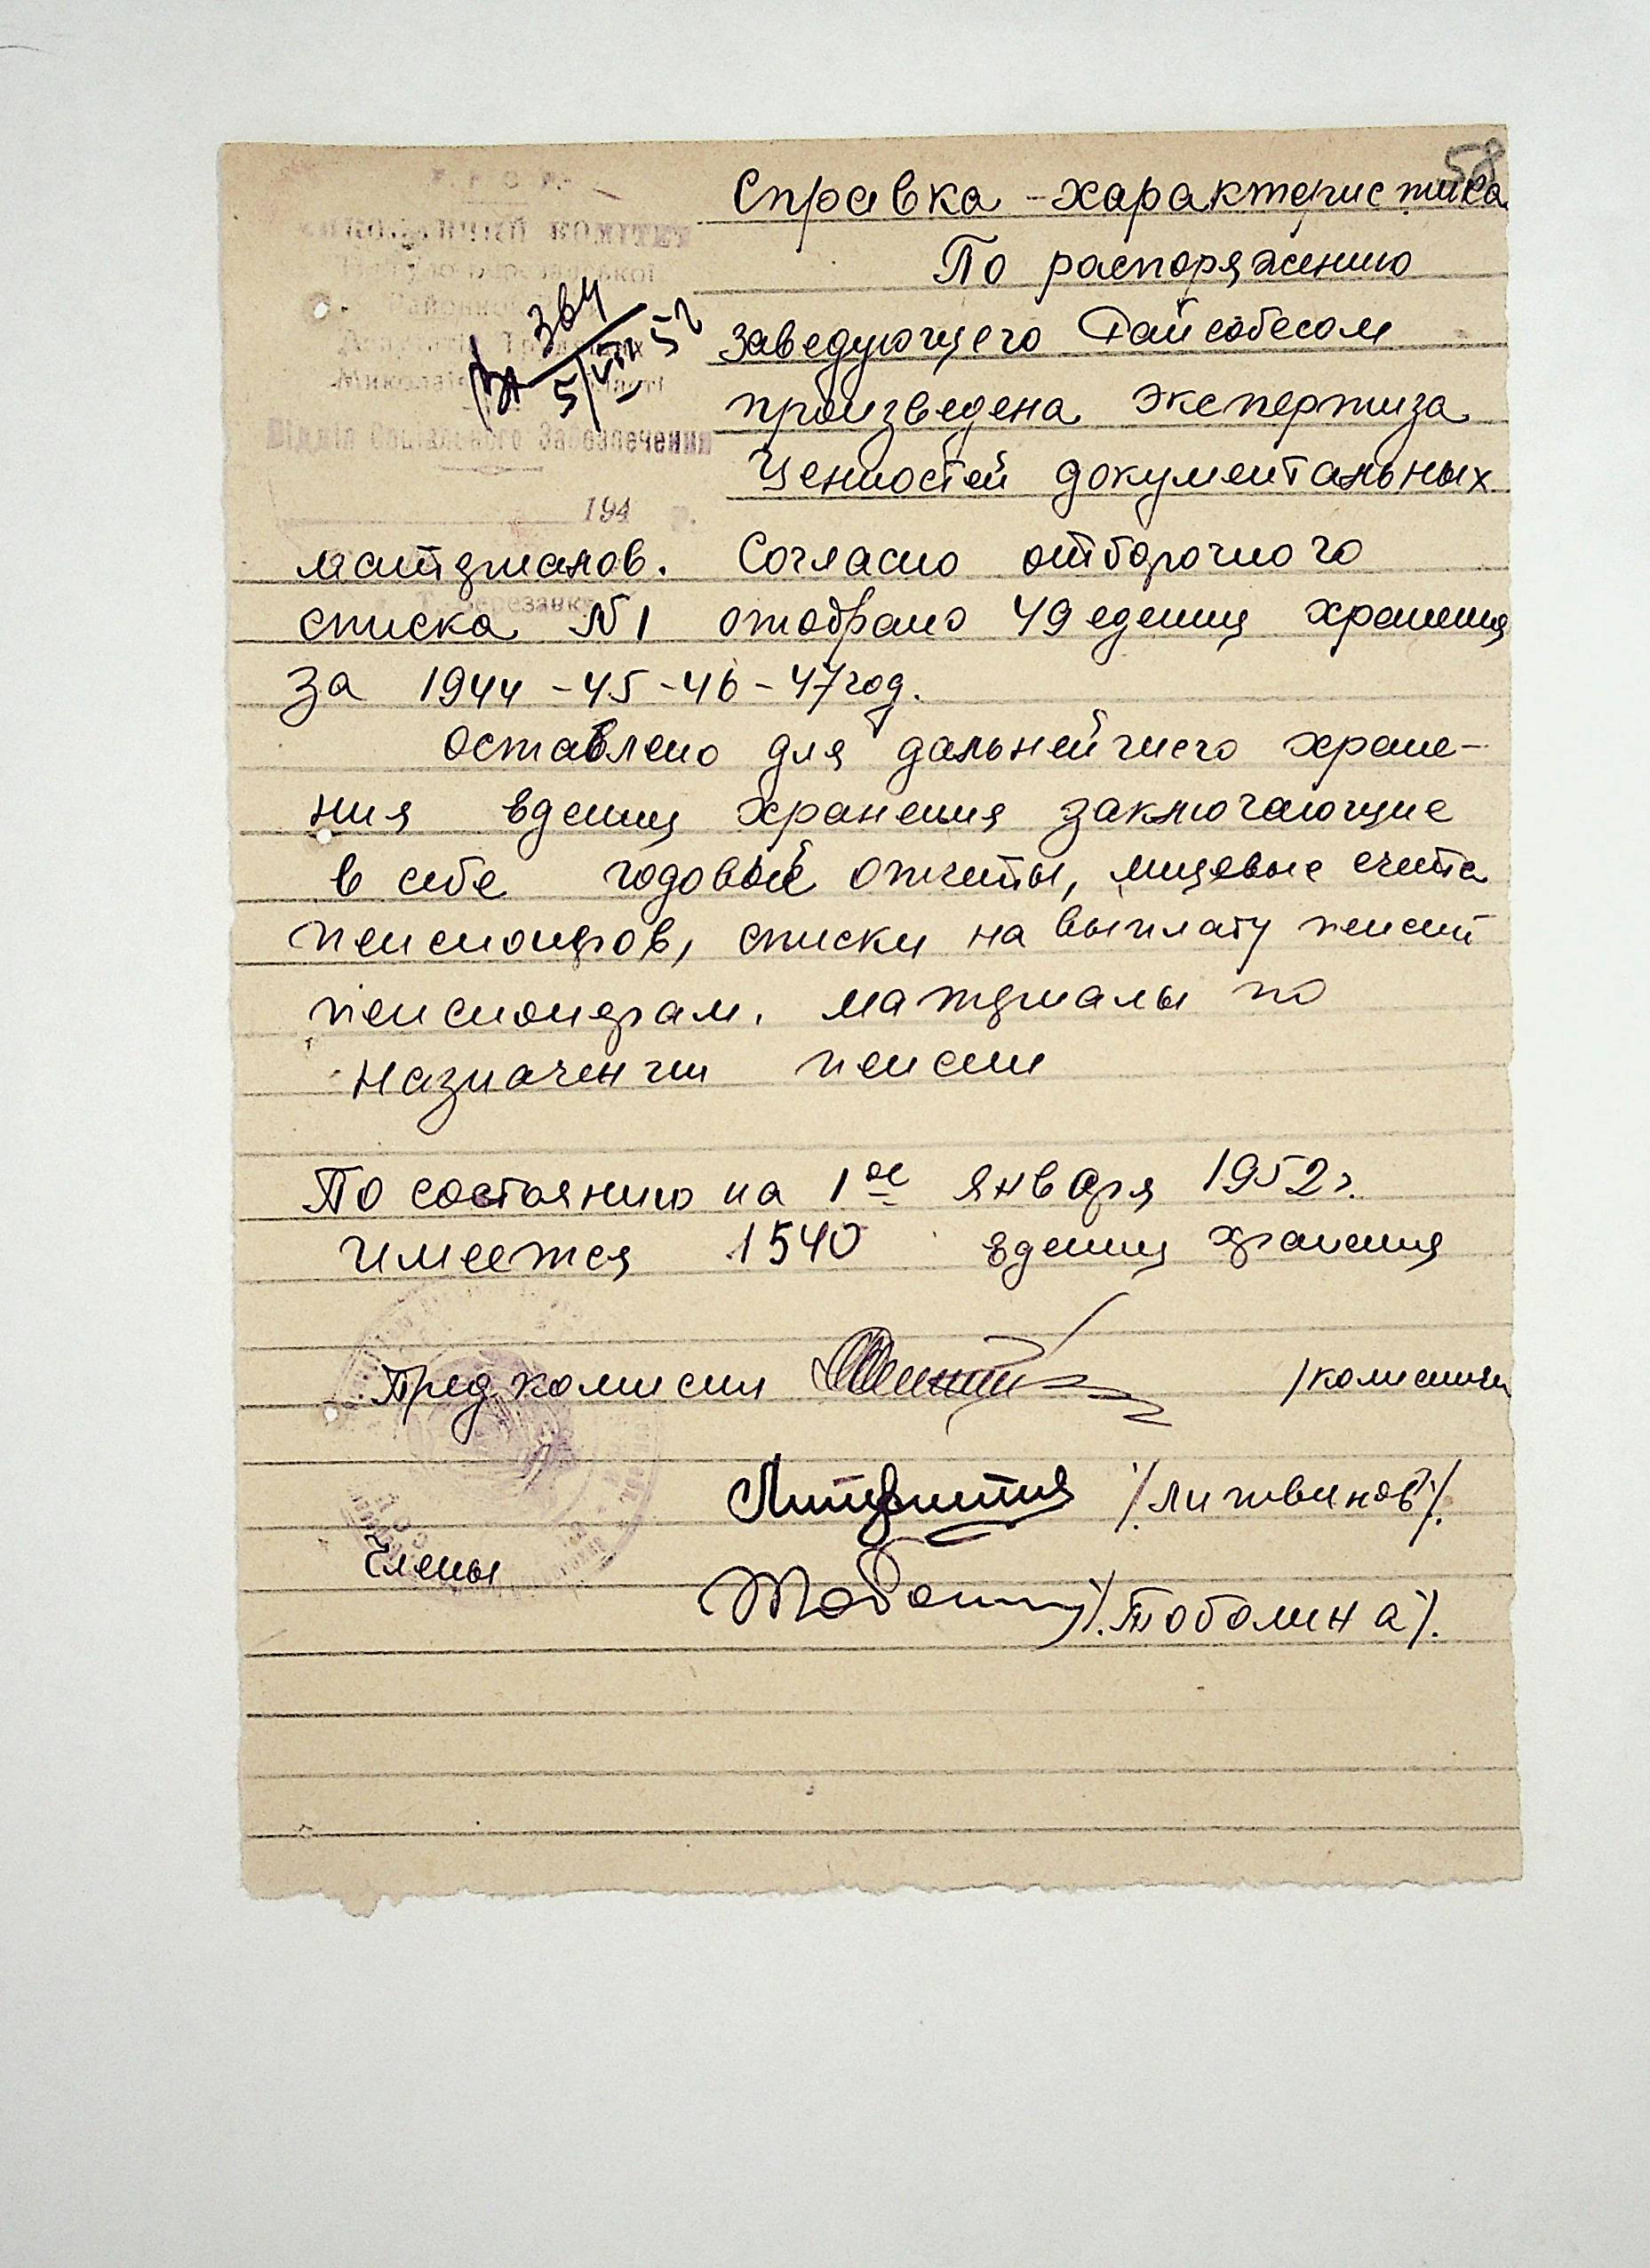 58
Справка - характеристика
По распоряжению
заведующего Райсобесом
произведена экспертиза
Ценностей документальных
У. Р. С. Р.
ВИКОНАВЧИЙ КОМІТЕТ
Районної
Відділ Соціального Забезпечення
194 р.
№ 364
5/VIII 52
материалов. Согласно отборочного
Т. Березанка
списка №1 отобрано 49 едениц хранения
за 1944 - 45 - 46 - 47 год.
Оставлено для дальнейшего хране-
ния едениц хранения заключающие
в себе годовые отчеты, лицевые счета
пенсионеров, списки на выплату пенсий
пенсионерам. материалы по
назначении пенсии
По состоянию на 1ое января 1952 г.
имеется 1540 едениц хранения
Пред комисии /комисии
/Литвинов/.
Члены
/.Тоболина/.